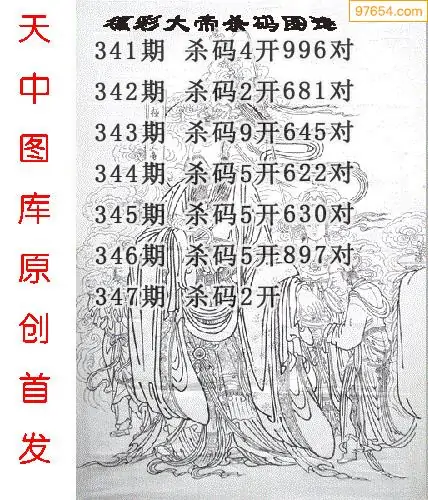 97654.com
福彩大帝杀码图迷
341期 杀码4开996对
342期 杀码2开681对
343期 杀码9开645对
344期 杀码5开622对
345期 杀码5开630对
346期 杀码5开897对
347期 杀码2开
天中图库原创首发